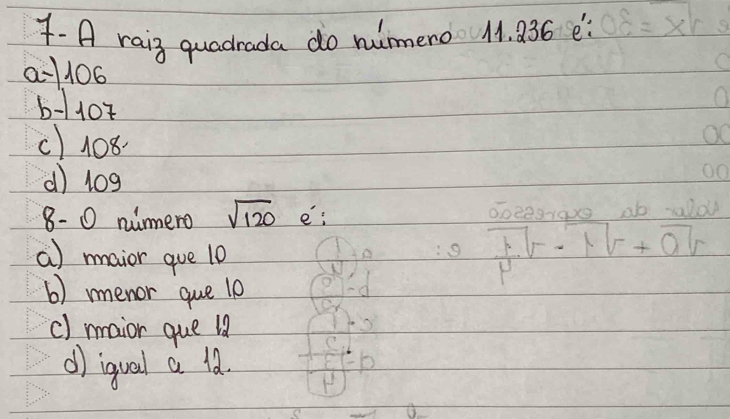 7- A raiz quadrada do número 11.236 é:
a-) 106
b-) 107
c) 108
d) 109
8- O número √120 é:
a) maior que 10
b) menor que 10
c) maior que 12
d) igual a 12.